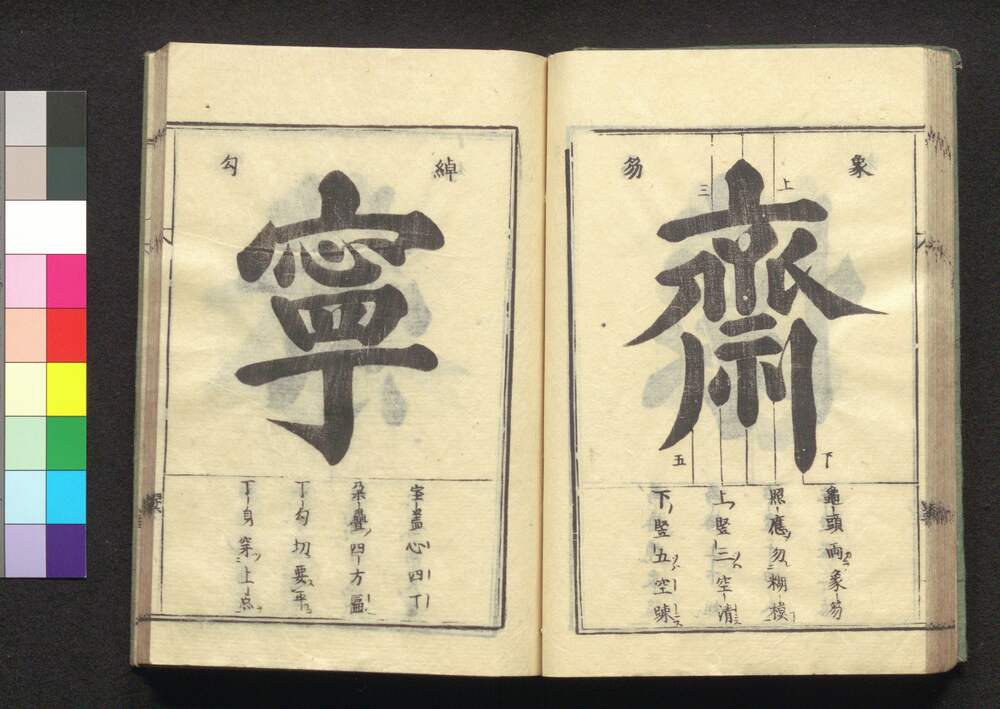 象
芻
上
三
齋
下
五
龜頭兩象芻
照應勿糊模
上竪三空清
下竪五空疎
綽
勾
寧
宝蓋心四丁
朶疊四方匾
丁勾切要平
丁身穿上点